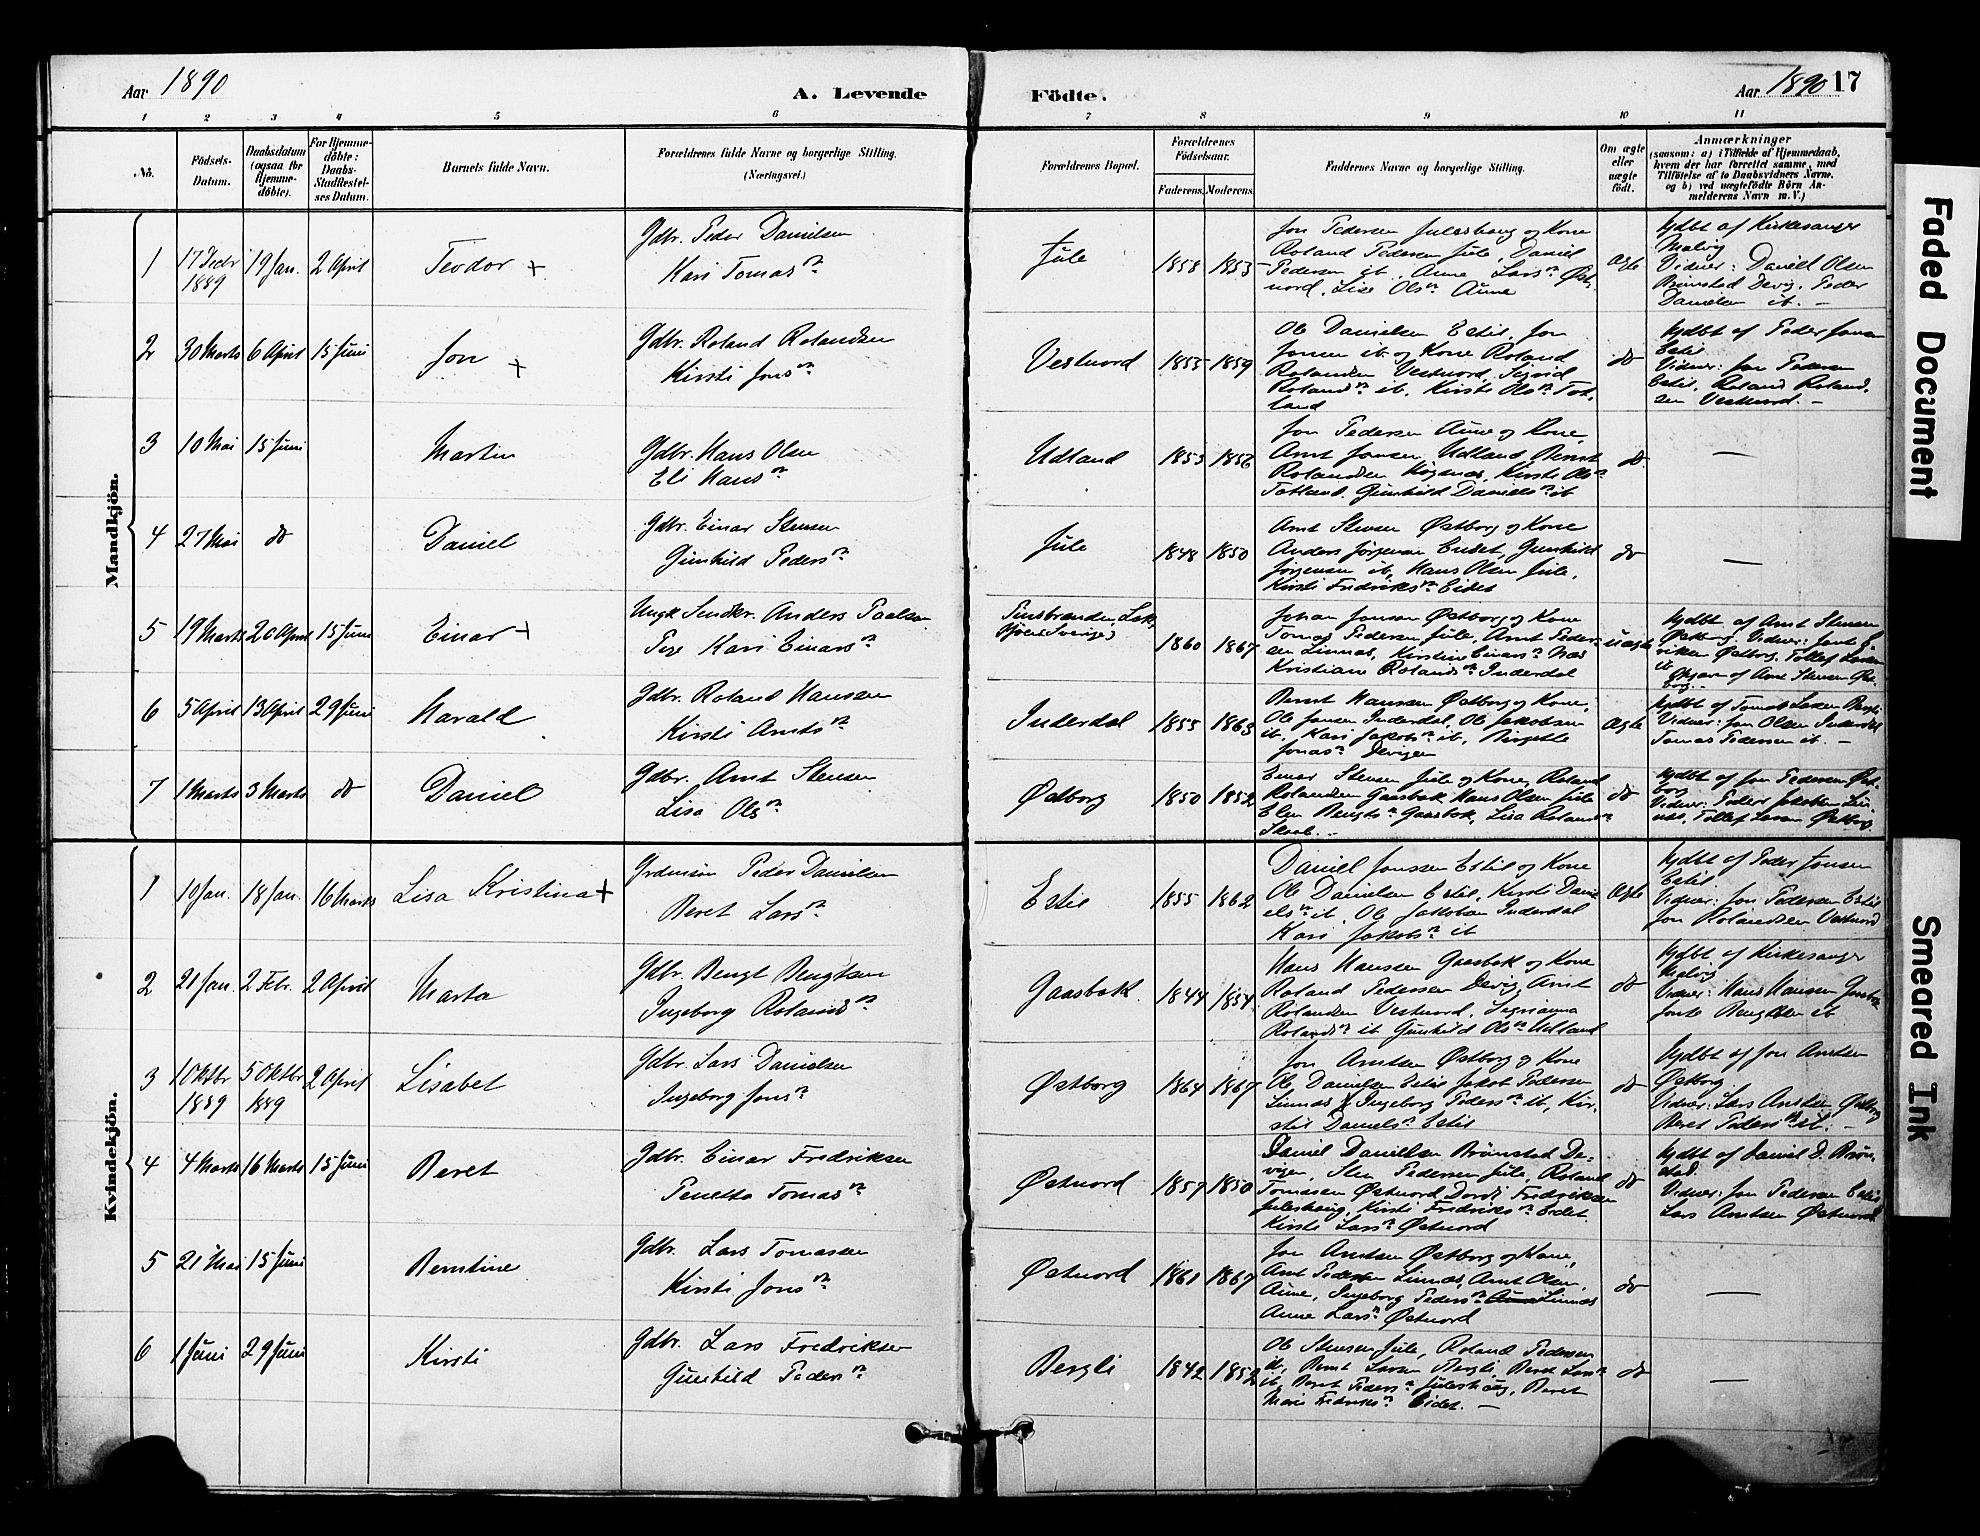 Aar 1890
A. Levende
Födte.
Aar 1890 17
1 2 3 4 5 6 7 8 9 10 11
No.
Födsels-
Datum.
Daabsdatum
(ogsaa for
Hjemme-
döbte).
For Hjemme-
döbte:
Daabs-
Stadfæstel-
ses Datum.
Barnets fulde Navn.
Forældrenes fulde Navne og borgerlige Stilling.
(Næringsvei.)
Forældrenes Bopæl.
Forældrenes
Födselsaar.
Faderens. Moderens.
Faddernes Navne og borgerlige Stilling.
Om ægte
eller
uægte
födt.
Anmærkninger
(saasom: a) i Tilfælde af Hjemmedaab,
hvem der har forrettet samme, med
Tilföielse af to Daabsvidners Navne.
og b) ved uægtefödte Börn An-
melderens Navn m. V.)
Mandkjön.
1 17 Decbr 1889 19 Jan. 2 April Teodor +
Gdbr. Peder Danielsen
Kari Tomasdr
Jule 1858 1853
Jon Pedersen Juleshaug og Kone
Roland Pedersen Jule, Daniel
Pedersen ib., Anne Larsdr Øst-
nord, Lise Olsdr Aune
ægte
hjdbt af Kirkesanger
Malvig
Vidner: Daniel Olsen
Brønstad Devig, Peder
Danielsen ib. –
2 30 Marts 6 April 15 Juni Jon +
Gdbr. Roland Rolandsen
Kirsti Jonsdr
Vestnord 1855 1859
Ole Danielsen Estil, Jon
Jonsen ib. og Kone Roland
Rolandsen Vestnord, Sigrid
Rolandsdr ib. Kirsti Olsdr Tot-
land
do
hjdbt af Peder Jonsen
Estil
Vidner: Jon Pedersen
Estil, Roland Roland-
sen Vestnord. –
3 10 Mai 15 Juni Martin
Gdbr. Hans Olsen
Eli Hansdr
Udland 1853 1856
Jon Pedersen Aune og Kone,
Arnt Jonsen Udland, Bernt
Rolandsen Kirsti Ols dr
Totland, Gunhild Danielsdr ib
do
—
4 27 Mai do Daniel
Gdbr. Einar Stensen
Gunhild Pedersdr
Jule 1848 1850
Arnt Stensen Østborg og Kone
Anders Jørgensen Eidet, Gunhild
Jørgensen ib, Hans Olsen Jule,
Kirsti Fredriksdr Eidet
do
—
5 19 Marts 20 April 15 Juni Einar +
Ungk. Anders Paalsen
Pige Kari Einarsdr
1860 1867
Johan Jonsen Østborg og Kone
Tomas Pedersen Jule, Arnt Peder-
sen Linnæs, Kirstine Einarsdr Næs
Kristiane Rolandsdr Inderdal
uægte
hjdbt af Arnt Stensen
Østborg. Vidner:
Østborg. Tollef Larsen
ib
Opgav. af Arnt Stensen Øst-
borg. –
6 5 April 13 April 29 Juni Harald
Gdbr. Roland Hansen
Kirsti Arntsdr
Inderdal 1855 1863
Bernt Hansen Østborg og Kone,
Ole Jonsen Inderdal, Ole Jakobsen
ib., Kari Jakobsdr ib, Birgitte
Jonasdr Devigen
ægte
hjdbt af Tomas Larsen Bergli
Vidner: Jon Olsen Inderdal
Tomas Pedersen ib. –
7 1 Marts 3 Marts do Daniel
Gdbr. Arnt Stensen
Lisa Olsdr
Østborg 1850 1852
Einar Stensen Jule og Kone, Roland
Rolandsen Gaasbak Hans Olsen Jule
Elen Bengtsdr Gaasbak, Lisa Rolandsdr
do
hjdbt af Jon Pedersen Øst-
borg
Vidner: Peder Jakobsen Lin-
næs, Tollef Larsen Østborg.
Kvindekjön.
1 10 Jan. 18 Jan. 16 Marts Lisa Kristina +
Peder Danielsen
Beret Larsdr
Estil 1855 1862
Daniel Jonssen Estil og Kone
Ole Danielsen Estil, Kirsti Dani-
elsdr ib, Ole Jakobsen Inderdal
Kari Jakobsdr ib
ægte
hjdbt af Peder Jonsen
Estil
Vidner: Jon Pedersen Estil
Jon Rolandsen Vestnord
2 21 Jan. 2 Febr. 2 April Marta
Gdbr. Bengt Bengtsen
Ingeborg Rolandsdr
Gaasbak. 1844 1854
Hans Hansen Gaasbak og Kone
Roland Pedersen Devig, Arnt
Rolandsen Vestnord, Signianna
Rolandsdr ib Gunhild Olsdr Udland
do
hjdbt af Kirkesanger
Malvig
Vidner: Hans Hansen Gaasbak
Bengtsen ib
3 1 Oktbr 1889 5 Oktbr 1889 2 April Lisabet
Gdbr. Lars Danielsen
Ingeborg Jonsdr
Østborg 1864 1867
Jon Arntsen Østborg og Kone
Ole Danielsen Estil Jakob Pedersen
Linnæs, Ingeborg Pedersdr ib, Kir-
sti Danielsdr Estil
do
hjdbt af Jon Arntsen
Østborg
Vidner: Lars Arntsen Østborg
Beret Pedersdr ib. –
4 4 Marts 16 Marts 15 Juni Beret
Gdbr. Einar Fredriksen
Penetta Tomasdr
Østnord 1857 1850
Daniel Danielsen Brønstad De-
vigen, Sten Pedersen Jule, Roland
Tomasen Østnord, Dordi Fredriksen
Juleshaug, Kirsti Fredriksdr Eidet
Kirsti Larsdr Østnord
do
hjdbt af Daniel D. Brøn-
stad.
Vidner: Jon Pedersen Estil
Lars Arntsen Østnord
5 21 Mai 15 Juni Berntine
Gdbr. Lars Tomassen
Kirsti Jonsdr
Østnord 1861 1867
Jon Arntsen Østborg og Kone,
Arnt Pedersen Linnæs, Arnt Olsen
Aune, Ingeborg Pedersdr Linnæs
Anne Larsdr Østnord
do
—
6 1 Juni 29 Juni Kirsti
Gdbr. Lars Fredriksen
Gunhild Pedersdr
Bergli 1842 1852
Ole Stensen Jule, Roland Pedersen
ib, Bernt Larsen Bergli, Beret Larsdr
ib, Beret Pedersdr Juleshaug, Beret
Marie Fredriksdr Eidet. –
do
—
Faded Document
Smeared Ink